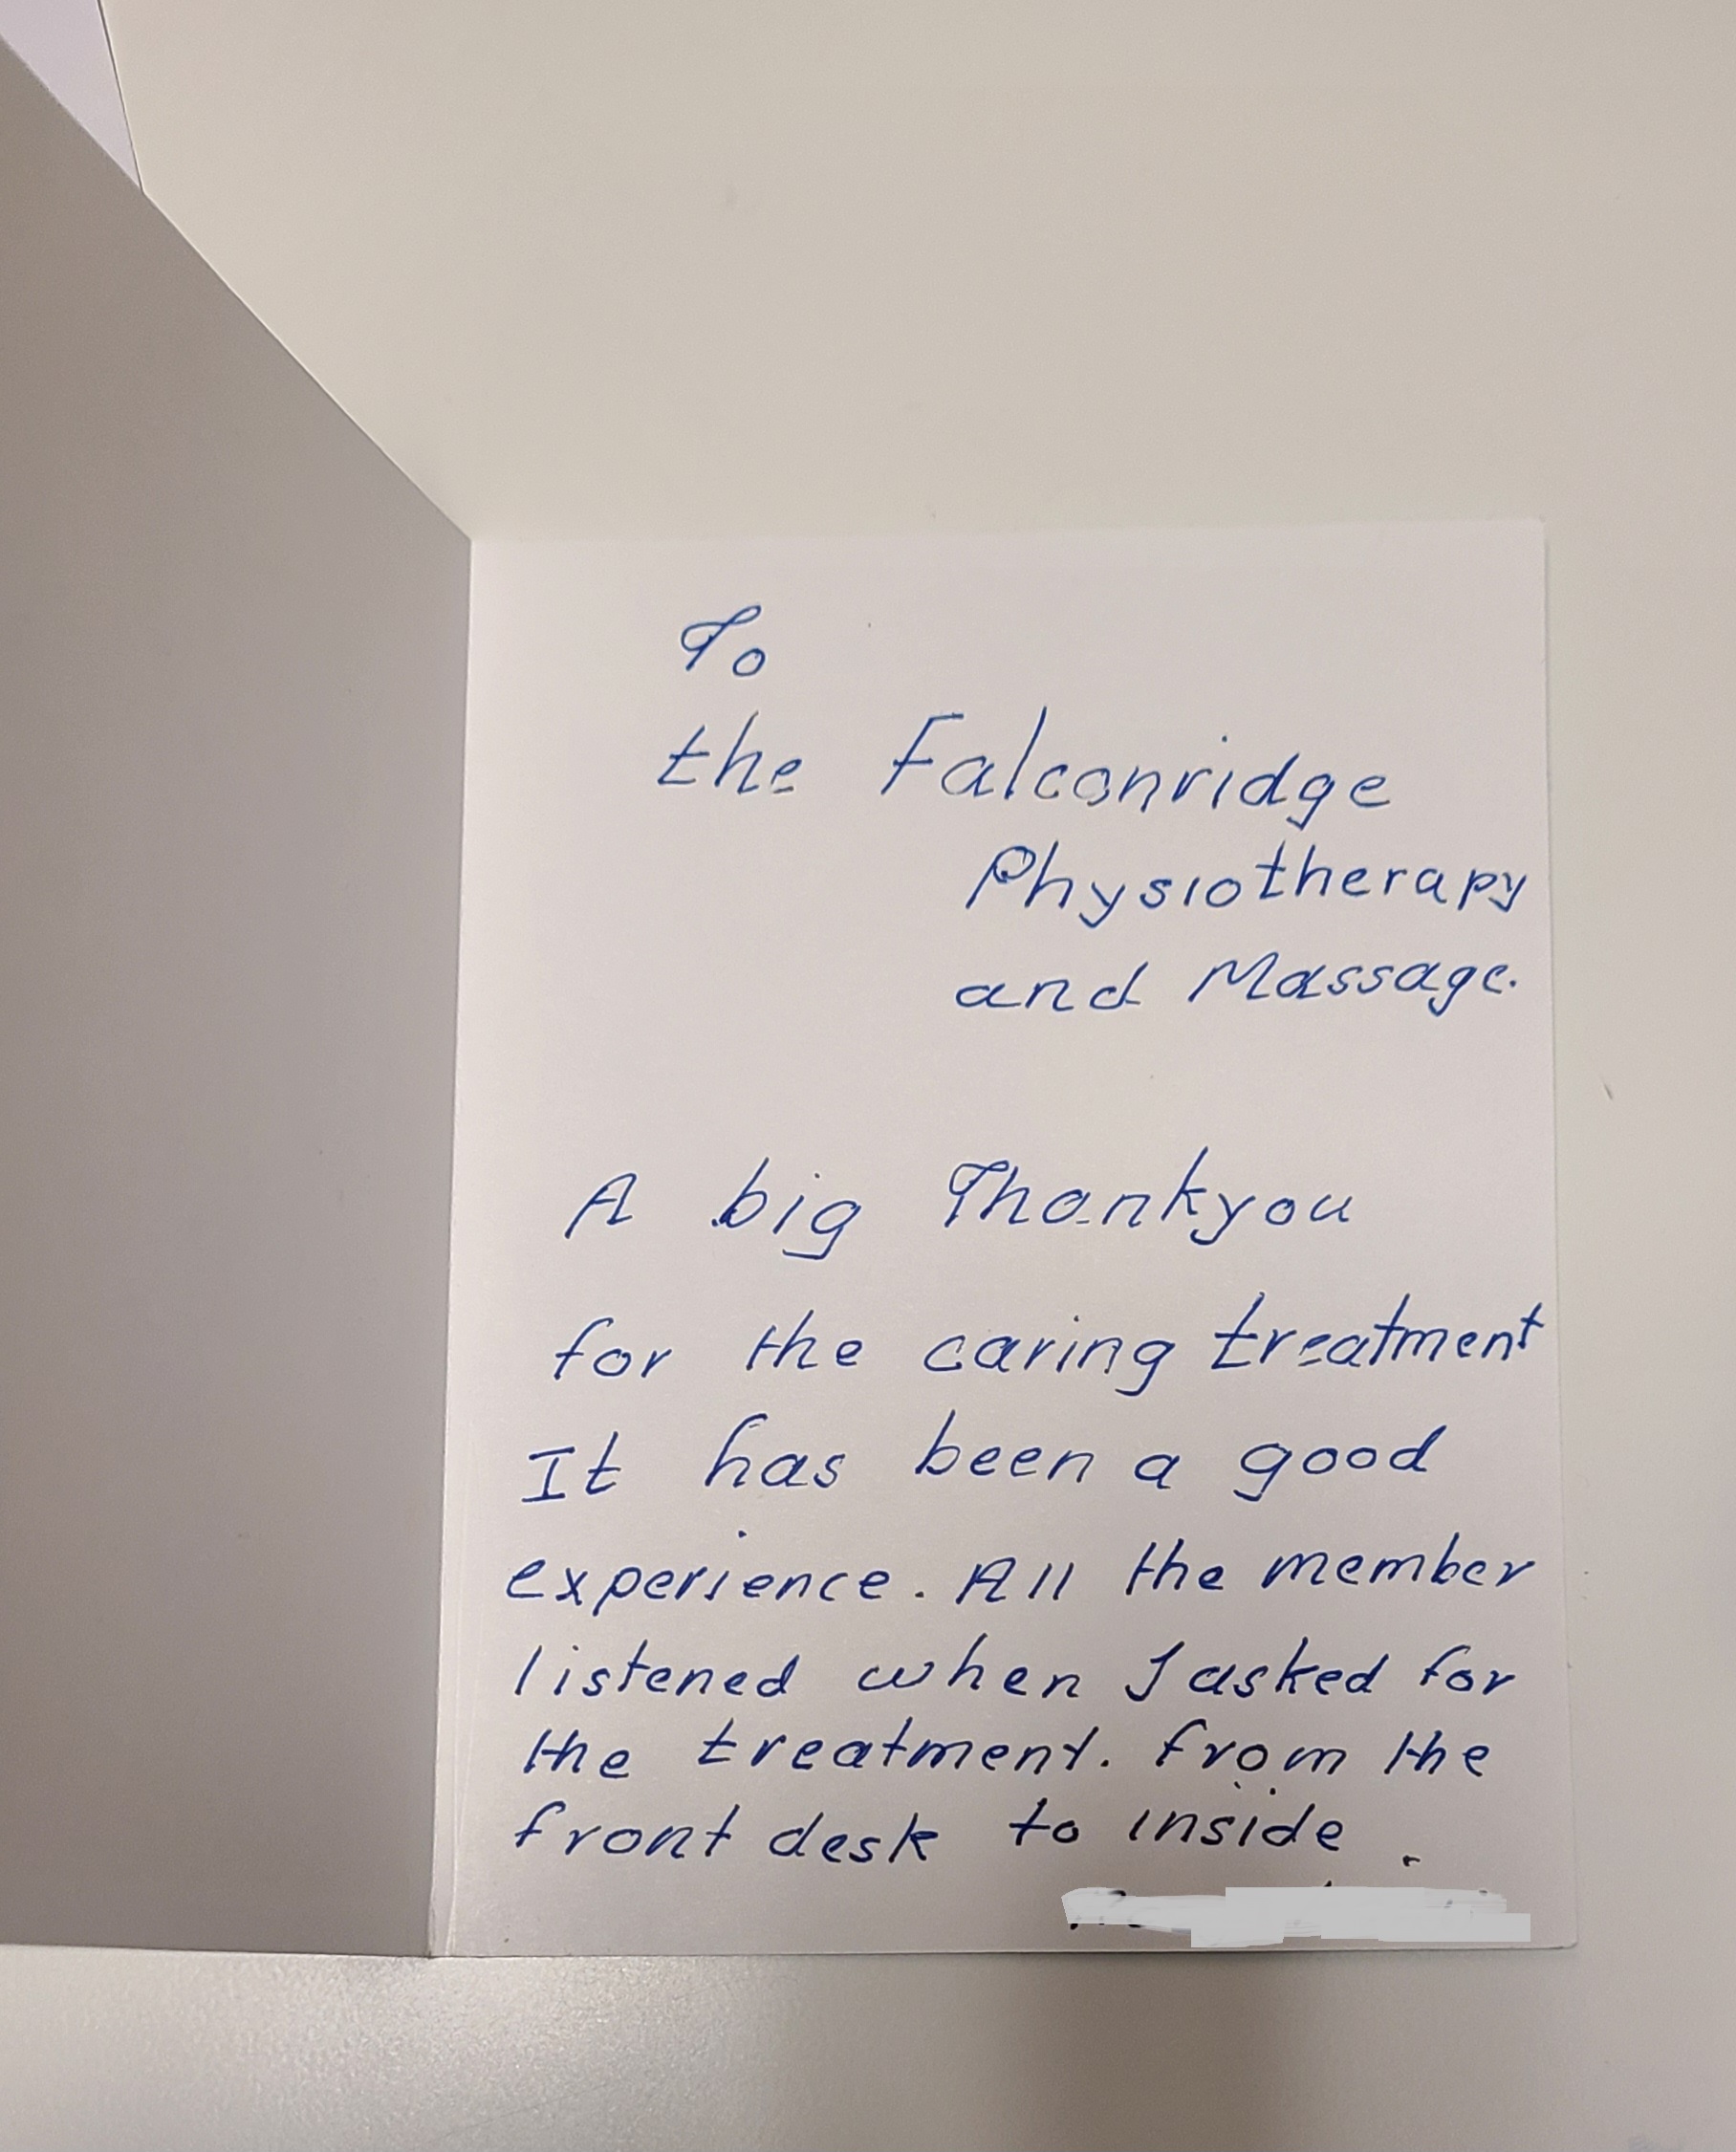 To
the Falconridge
Physiotherapy
and Massage.
A big Thankyou
for the caring treatment
It has been a good
experience. All the member
listened when I asked for
the treatment. from the
front desk to inside.